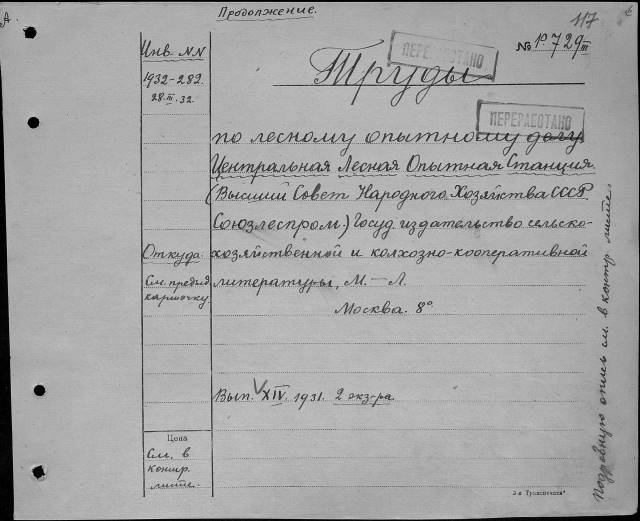 Продолжение.
117
Инв. NN
№ 1º 729 III
ПЕРЕРАБОТАНО
1932-282.
28.III.32.
Труды
ПЕРЕРАБОТАНО
по лесному опытному делу
Центральная Лесная Опытная Станция.
(Высший Совет Народного Хозяйства СССР.
Союзлеспром.) Госуд. издательство сельско-
Откуда.
хозяйственной и колхозно-кооперативной
См. предыд.
карточку.
литературы, М.-Л.
Москва. 8º
Вып. XIV. 1931. 2 экз-ра.
Цена
См. в
контр.
листе.
Подробную опись см. в контр. листе.